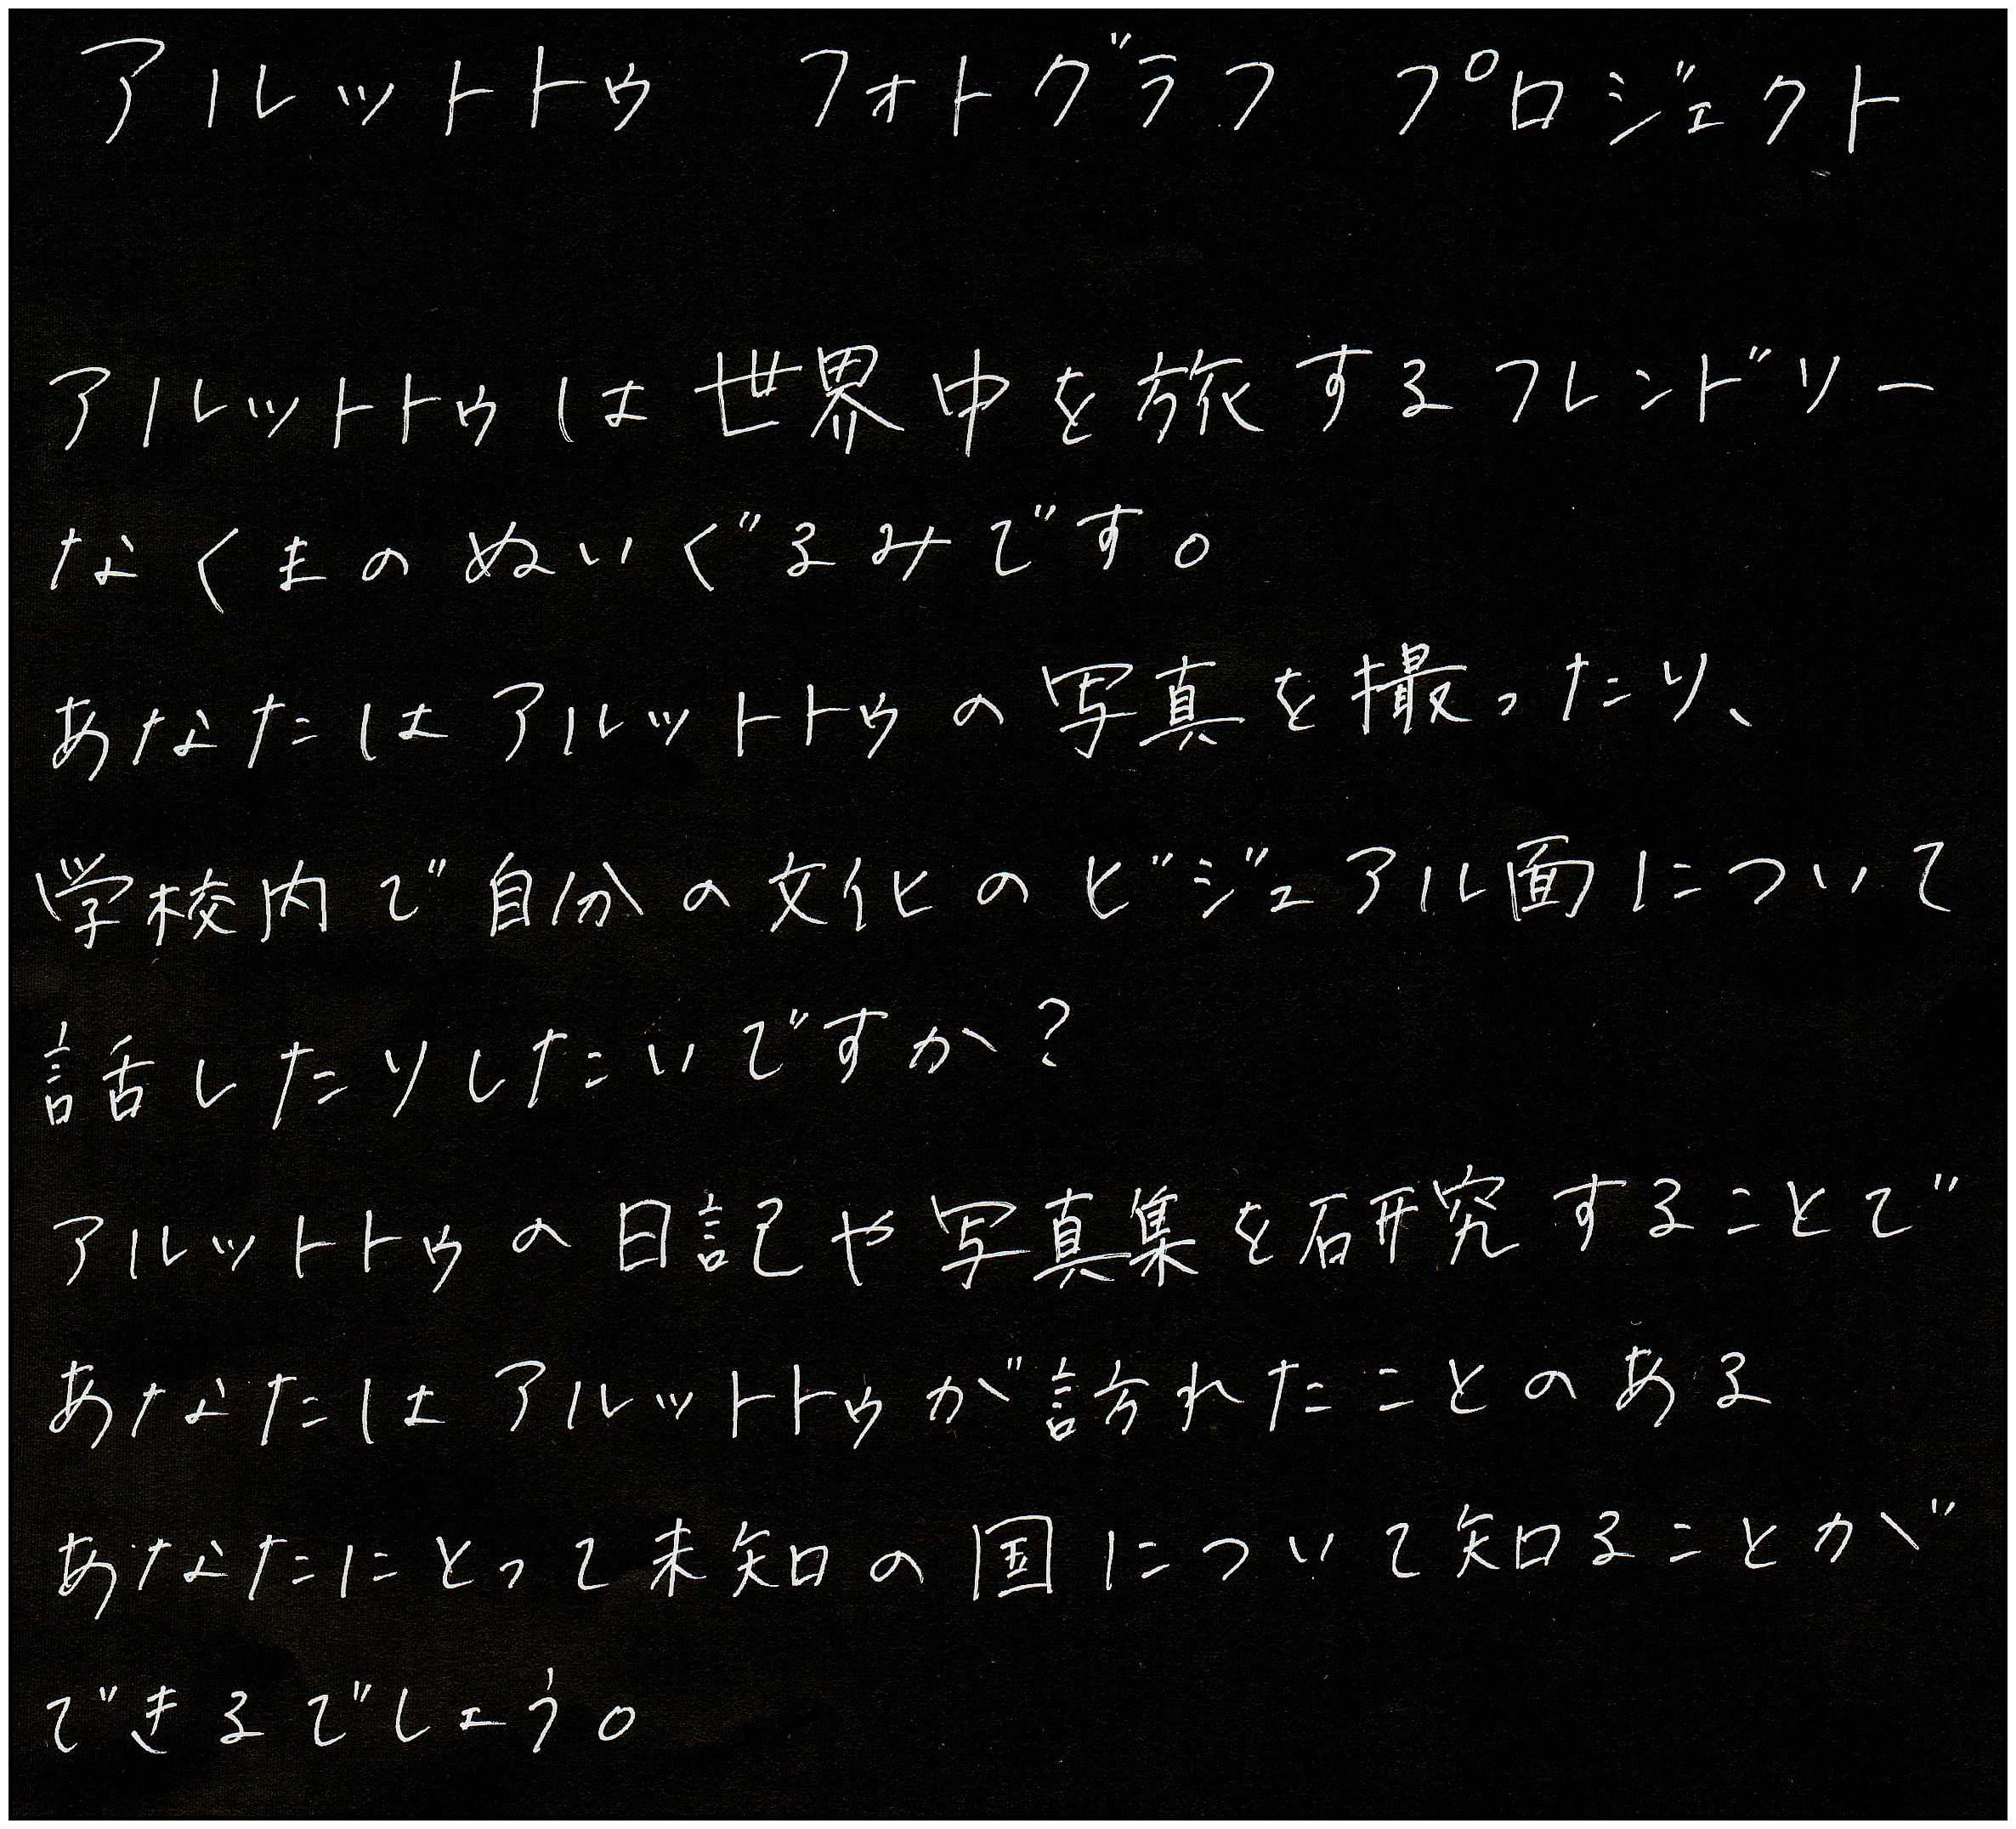 アルットトゥ フォトグラフ プロジェクト
アルットトゥは世界中を旅するフレンドリー
なくまのぬいぐるみです。
あなたはアルットトゥの写真を撮ったり、
学校内で自分の文化のビジュアル面について
話したりしたいですか?
アルットトゥの日記や写真集を研究することで
あなたはアルットトゥが訪れたことのある
あなたにとって未知の国について知ることが
できるでしょう。